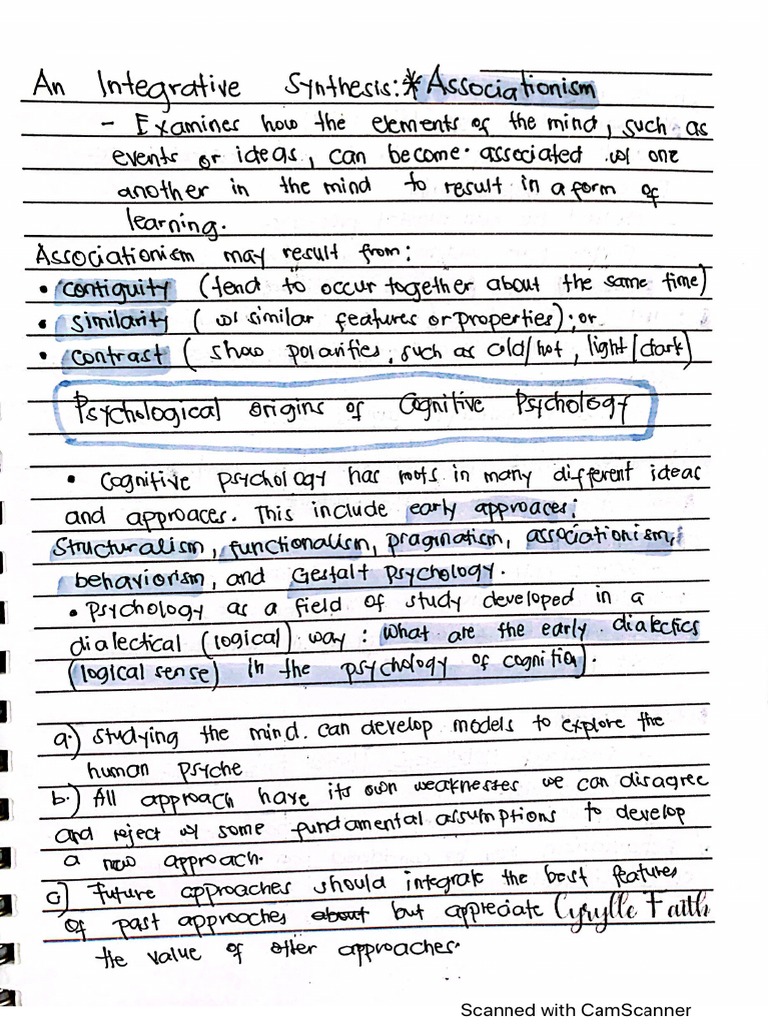 An Integrative Synthesis: * Associationism
- Examines how the elements of the mind, such as
events or ideas, can become associated w/ one
another in the mind to result in a form of
learning.
Associationism may result from:
• contiguity (tend to occur together about the same time)
• similarity (w/ similar features or properties); or
• contrast (show polarities, such as cold/hot, light/dark)
Psychological origins of Cognitive Psychology
• Cognitive psychology has roots in many different ideas
and approaces. This include early approaces;
Structuralism, functionalism, pragmatism, associationism,
behaviorism, and Gestalt Psychology.
• Psychology as a field of study developed in a
dialectical (logical) way: what are the early dialectics
(logical sense) in the psychology of cognition.
a.) Studying the mind. can develop models to explore the
human psyche
b.) All approach have its own weaknesses we can disagree
and reject w/ some fundamental assumptions to develop
a new approach.
c) Future approaches should integrate the best features
of past approaches about but appreciate Cyrylle Faith
the value of other approaches.
Scanned with CamScanner